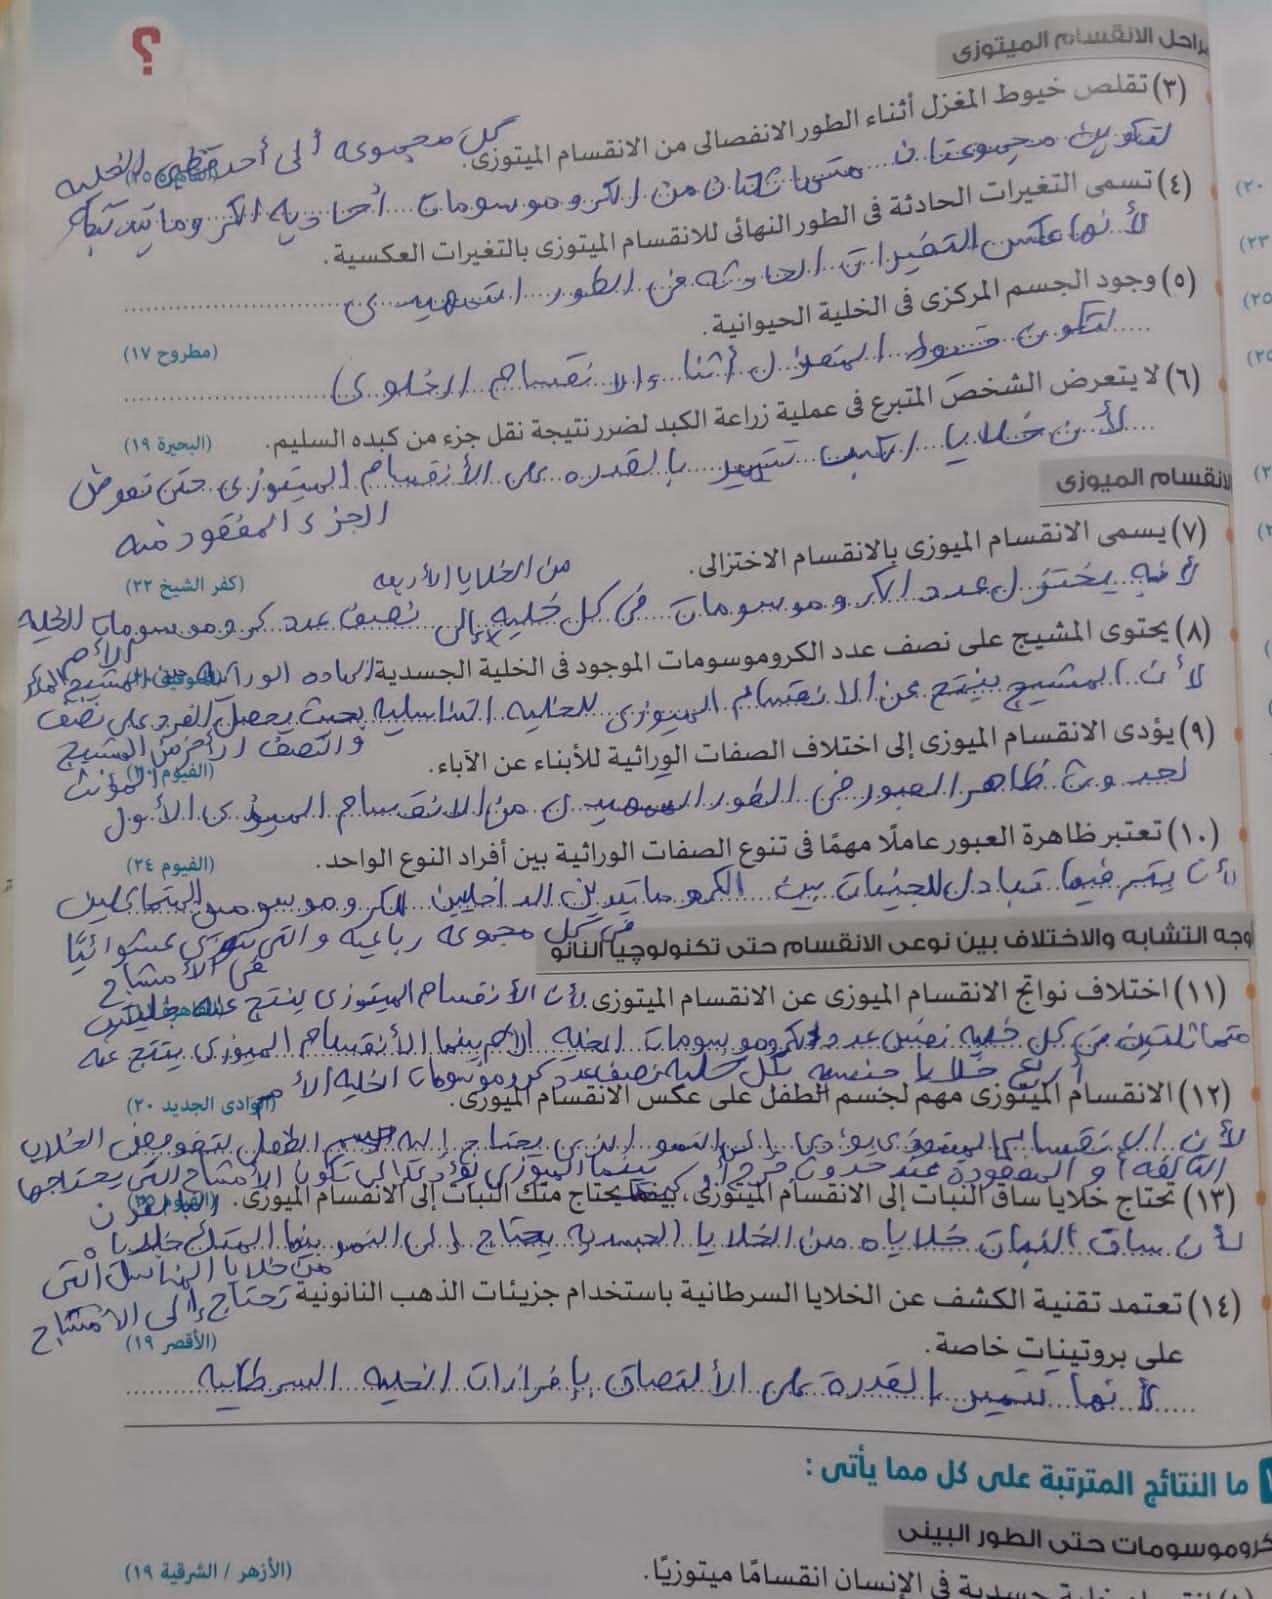 ؟
مراحل الانقسام الميتوزى
(٣) تقلص خيوط المغزل أثناء الطور الانفصالى من الانقسام الميتوزى.
كل مجموعه ألى أحد قطبى الخليه
لتكوين مجموعتان متماثلتان من الكروموسومات أحاديه الكروماتيد تتجه
(٤) تسمى التغيرات الحادثة فى الطور النهائى للانقسام الميتوزى بالتغيرات العكسية.
لأنها عكس التغيرات الحادثه فى الطور التمهيدى
(٥) وجود الجسم المركزى فى الخلية الحيوانية.
(مطروح ١٧)
لتكون خيوط المغزل أثناء الانقسام الخلوى
(٦) لا يتعرض الشخص المتبرع فى عملية زراعة الكبد لضرر نتيجة نقل جزء من كبده السليم.
(البحيرة ١٩)
لأن خلايا الكبد تتميز بالقدره على الأنقسام الميتوزى حتى تعوض
الجزء المفقود منه
الانقسام الميوزى
(٧) يسمى الانقسام الميوزى بالانقسام الاختزالى.
(كفر الشيخ ٢٢)
من الخلايا الأربعه
لأنه يختزل عدد الكروموسومات فى كل خليه إلى نصف عدد كروموسومات الخليه
الأم
(٨) يحتوى المشيج على نصف عدد الكروموسومات الموجود فى الخلية الجسدية.
الماده الوراثيه من المشيج المذكر
لأن المشيج ينتج عن الانقسام الميوزى للخليه التناسليه بحيث يحصل الفرد على نصف
والنصف الأخر من المشيج
المؤنث
(٩) يؤدى الانقسام الميوزى إلى اختلاف الصفات الوراثية للأبناء عن الآباء.
(الفيوم ٢٠)
لحدوث ظاهر العبور فى الطور التمهيدى من الانقسام الميوزى الأول
(١٠) تعتبر ظاهرة العبور عاملًا مهمًا فى تنوع الصفات الوراثية بين أفراد النوع الواحد.
(الفيوم ٢٤)
لأن يتم فيها تبادل للجينات بين الكروماتيدين الداخليين للكروموسومين المتماثلين
فى كل مجموعه رباعيه والتى تتوزع عشوائيًا
فى الأمشاج
أوجه التشابه والاختلاف بين نوعى الانقسام حتى تكنولوجيا النانو
(١١) اختلاف نواتج الانقسام الميوزى عن الانقسام الميتوزى.
لأن الأنقسام الميتوزى ينتج عنه خليتين
متماثلتين فى كل خليه نفس عدد كروموسومات الخليه الأم بينما الأنقسام الميوزى ينتج عنه
أربع خلايا جنسيه بكل خليه نصف عدد كروموسومات الخليه الأم
(١٢) الانقسام الميتوزى مهم لجسم الطفل على عكس الانقسام الميوزى.
(الوادى الجديد ٢٠)
لأن الانقسام الميتوزى يؤدى إلى النمو الذى يحتاج إليه جسم الطفل لتعويض الخلايا
التالفه أو المفقودة عند حدوث جرح بينما الميوزى يؤدى إلى تكون الأمشاج التى يحتاجها
البالغون
(١٣) تحتاج خلايا ساق النبات إلى الانقسام الميتوزى، بينما يحتاج متك النبات إلى الانقسام الميوزى.
(الفيوم ٢٥)
لأن ساق النبات خلاياه من الخلايا الجسديه يحتاج إلى النمو بينما المتك خلاياه
من خلايا التناسل التى
تحتاج إلى الأمشاج
(١٤) تعتمد تقنية الكشف عن الخلايا السرطانية باستخدام جزيئات الذهب النانونية
على بروتينات خاصة.
(الأقصر ١٩)
لأنها تتميز بالقدرة على الألتصاق بإفرازات الخليه السرطانيه
ما النتائج المترتبة على كل مما يأتى :
كروموسومات حتى الطور البينى
(الأزهر / الشرقية ١٩)
خلية جسدية فى الإنسان انقسامًا ميتوزيًا.